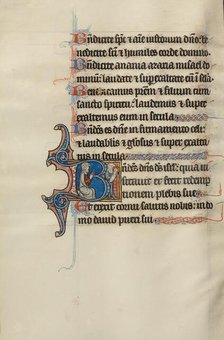 Benedicite spc et aīe iustorum dño: be
nedicite sc̄i et humiles corde domino
Benedicite anania azaria misael do
mino: laudate et superexaltate eum ī sc̄la
Benedicamus patrem et filium cum
sancto spiritu: laudemus et super
exaltemus eum in secula
Bndc̄s es dñe in firmamento celi:
et laudabilis et gl̓osus et super exalta
tus in secula
Bndictus dñs ds̄ isrl̓: quia ui
sitauit et fecit redemp
tionem plebis sue
Et erexit cornu salutis nobis: in do
mo dauid pueri sui